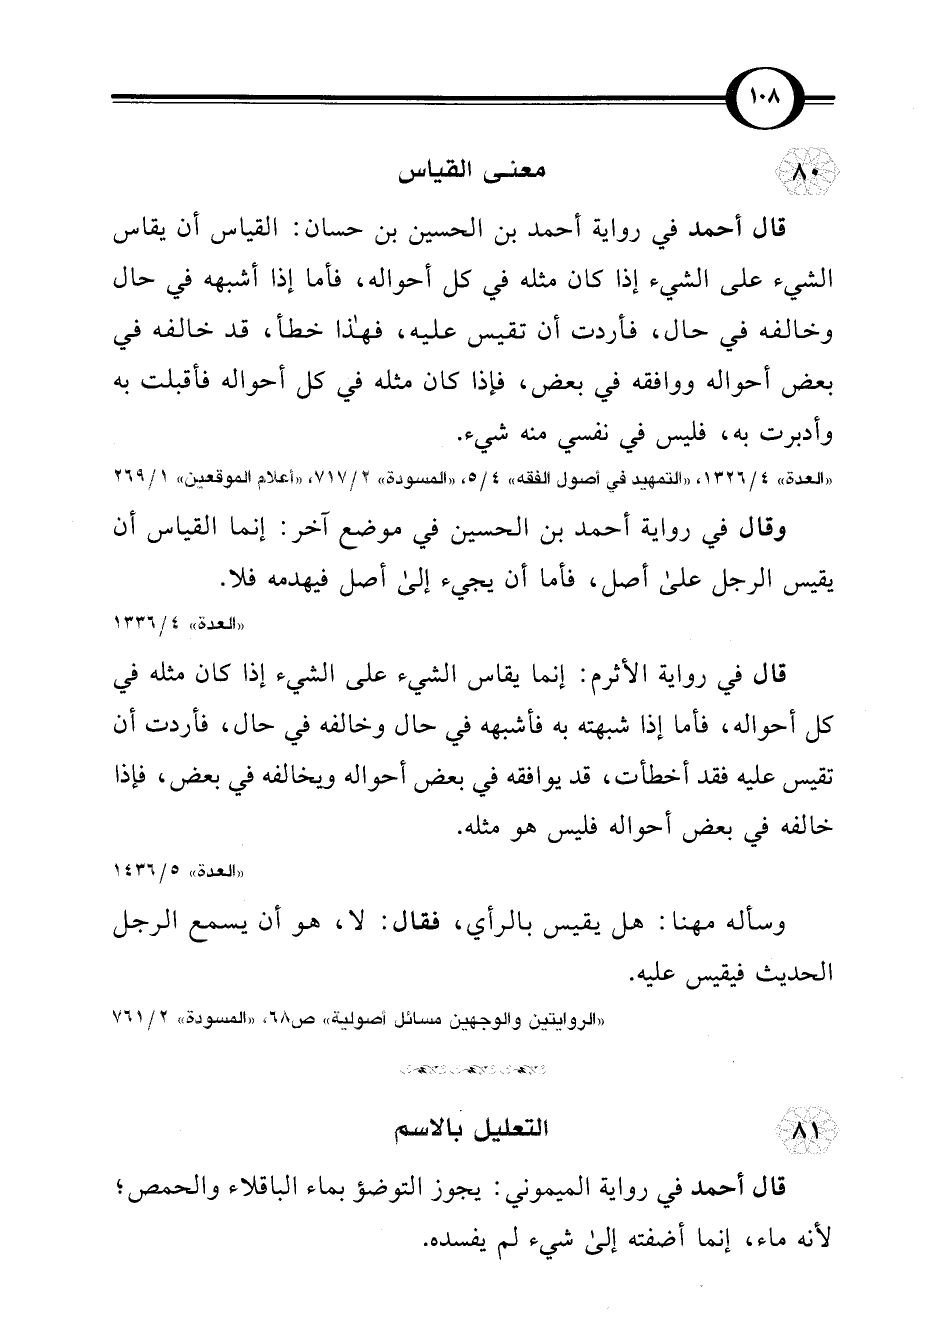 ١٠٨
٨٠
معنى القياس
قال أحمد في رواية أحمد بن الحسين بن حسان: القياس أن يقاس
الشيء على الشيء إذا كان مثله في كل أحواله، فأما إذا أشبهه في حال
وخالفه في حال، فأردت أن تقيس عليه، فهٰذا خطأ، قد خالفه في
بعض أحواله ووافقه في بعض، فإذا كان مثله في كل أحواله فأقبلت به
وأدبرت به، فليس في نفسي منه شيء.
«العدة» ٤/ ١٣٢٦، «التمهيد في أصول الفقه» ٤/ ٥، «المسودة» ٢/ ٧١٧، «أعلام الموقعين» ١/ ٢٦٩
وقال في رواية أحمد بن الحسين في موضع آخر: إنما القياس أن
يقيس الرجل علىٰ أصل، فأما أن يجيء إلىٰ أصل فيهدمه فلا.
«العدة» ٤/ ١٣٣٦
قال في رواية الأثرم: إنما يقاس الشيء على الشيء إذا كان مثله في
كل أحواله، فأما إذا شبهته به فأشبهه في حال وخالفه في حال، فأردت أن
تقيس عليه فقد أخطأت، قد يوافقه في بعض أحواله ويخالفه في بعض، فإذا
خالفه في بعض أحواله فليس هو مثله.
«العدة» ٥/ ١٤٣٦
وسأله مهنا: هل يقيس بالرأي، فقال: لا، هو أن يسمع الرجل
الحديث فيقيس عليه.
«الروايتين والوجهين مسائل أصولية» ص٦٨، «المسودة» ٢/ ٧٦١
٨١
التعليل بالاسم
قال أحمد في رواية الميموني: يجوز التوضؤ بماء الباقلاء والحمص؛
لأنه ماء، إنما أضفته إلىٰ شيء لم يفسده.